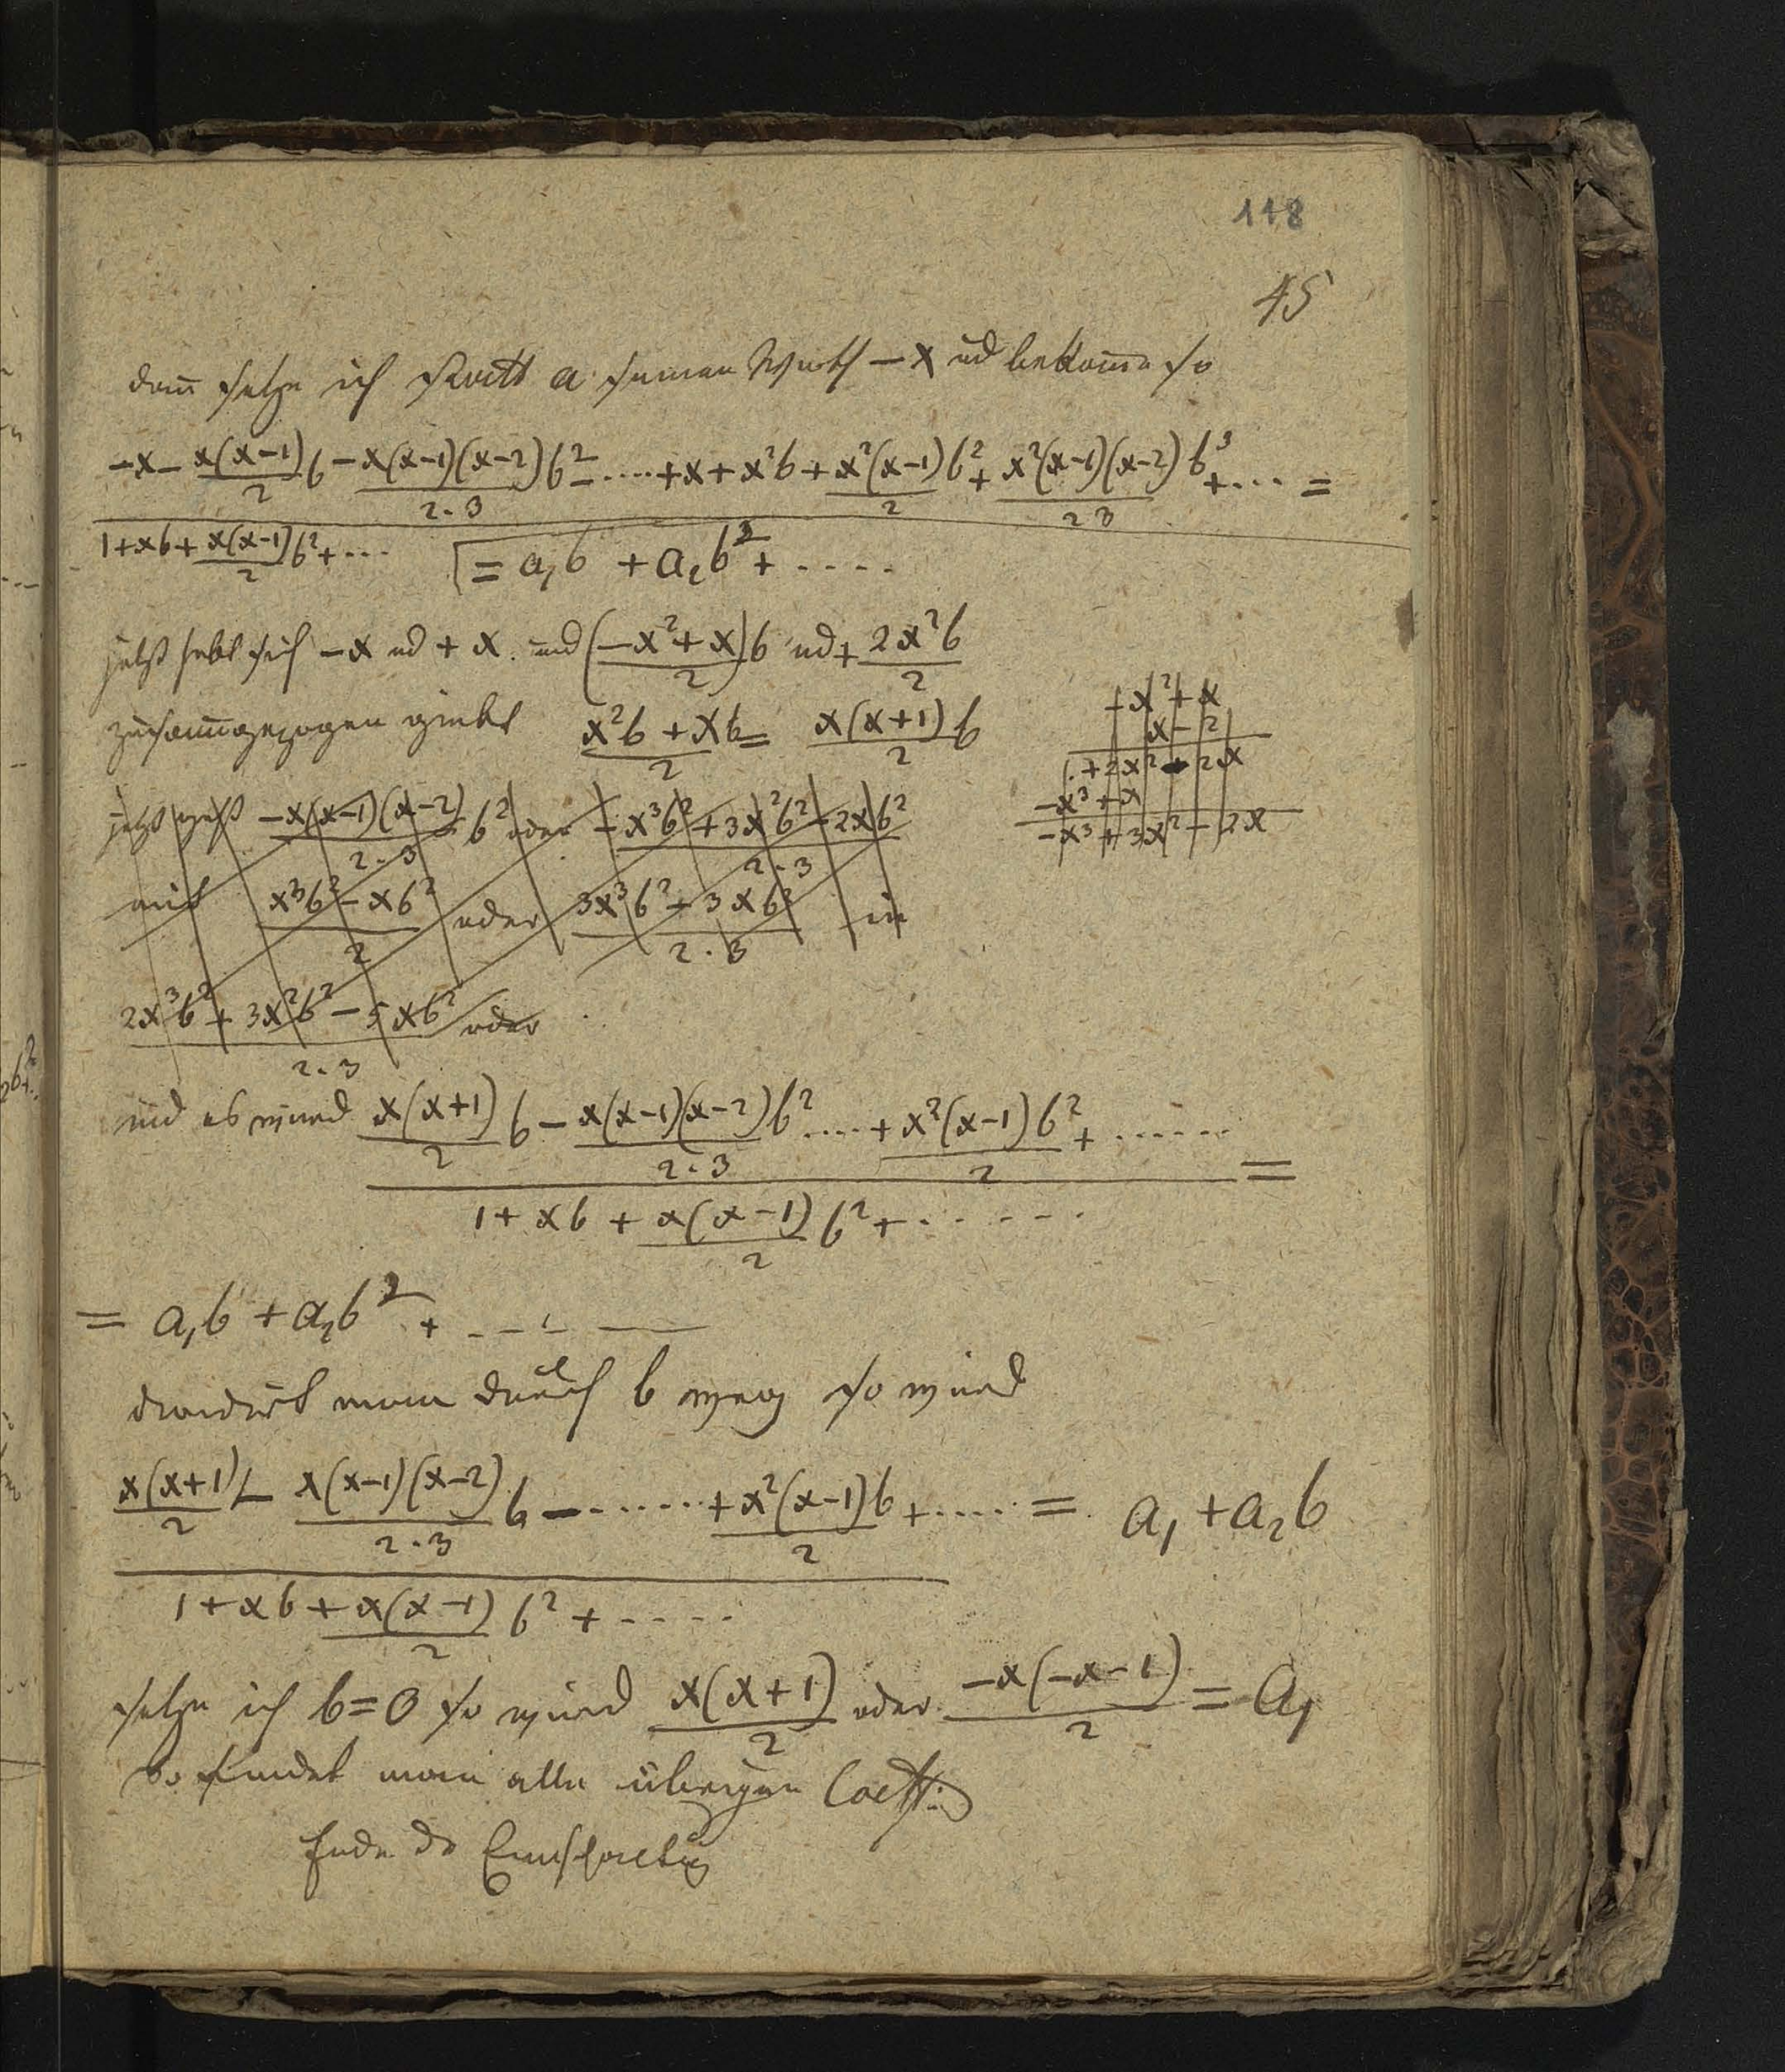 118
45
dann setze ich statt a seinen Werth −x ud bekom̄e so
−x − x(x−1)/2 b − x(x−1)(x−2)/2·3 b² − .... + x + x²b + x²(x−1)/2 b² + x²(x−1)(x−2)/2 3 b³ + ... =
1 + xb + x(x−1)/2 b² + ...
= a₁b + a₂b² + ....
jetzt hebt sich −x ud + x. und (−x² + x)/2 b ud + 2x²b/2
zusam̄gezogen giebt x²b + xb/2 = x(x+1)/2 b
−x² + x
x − 2
+ 2x² − 2x
−x³ + x
−x³ + 3x² − 2x
jetzt geht −x(x−1)(x−2)/2·3 b² oder −x³b² + 3x²b² − 2xb²/2·3
mit x³b² − xb²/2 oder 3x³b² − 3xb²/2·3 in
2x³b² + 3x²b² − 5xb²/2·3 oder
und es wird x(x+1)/2 b − x(x−1)(x−2)/2·3 b² .... + x²(x−1)/2 b² + ...... =
1 + xb + x(x−1)/2 b² + ......
= a₁b + a₂b² + ....
dividirt man durch b weg so wird
x(x+1)/2 − x(x−1)(x−2)/2·3 b − ...... + x²(x−1)/2 b + ..... = a₁ + a₂b
1 + xb + x(x−1)/2 b² + .....
setze ich b=0 so wird x(x+1)/2 oder −x(−x−1)/2 = a₁
So findet man alle übrigen Coeff:
Ende der Einschaltung